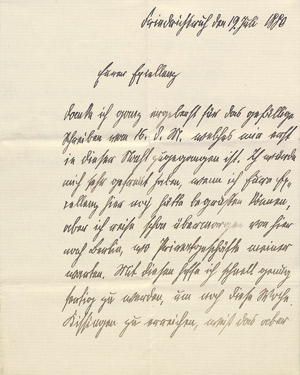 Friedrichsruh den 19. Juli 1890
Euerer Exzellenz
danke ich ganz ergebenst für das gefällige
Schreiben vom 16. d. M. welches mir erst
in dieser Nacht zugegangen ist. Ich würde
mich sehr gefreut haben, wenn ich Eure Ex-
zellenz hier noch hätte begrüßen können,
aber ich reise schon übermorgen von hier
nach Berlin, wo Privatgeschäfte meiner
warten. Mit diesen hoffe ich schnell genug
fertig zu werden, um noch diese Woche
Kissingen zu erreichen, weiß das aber